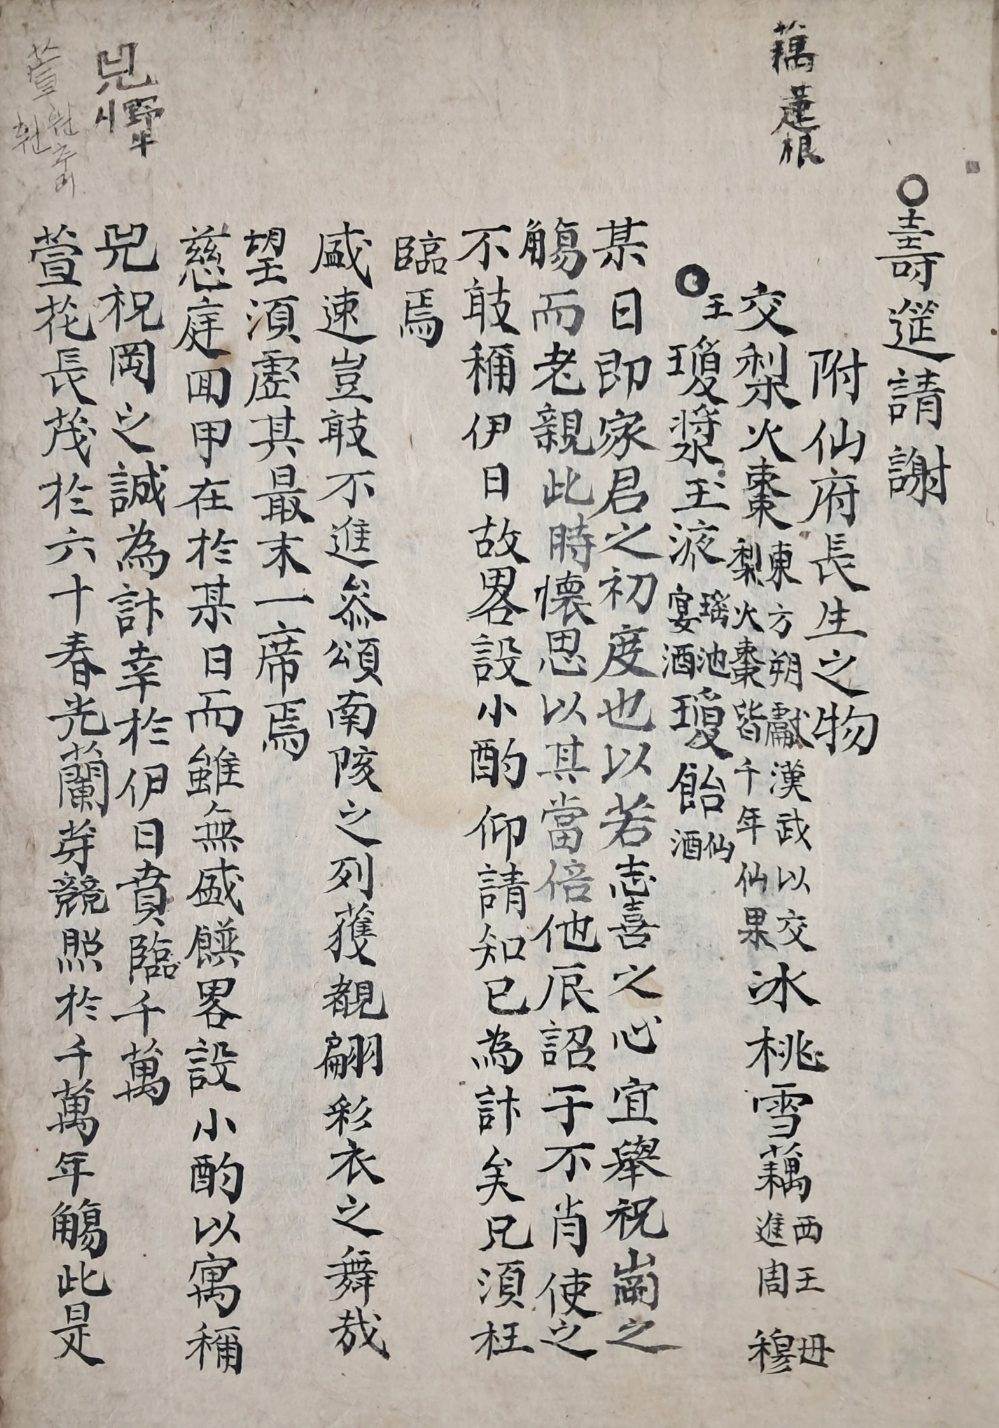 藕 蓮根
○壽筵請謝
附仙府長生之物
交梨火棗 東方朔獻漢武以交梨火棗皆千年仙果 冰桃雪藕 西王母進周穆王
瓊漿玉液 瑤池宴酒 瓊飴 仙酒
某日即家君之初度也以若志喜之心宜舉祝崗之
觴而老親此時懷思以其當倍他辰詔于不肖使之
不敢稱伊日故畧設小酌仰請知已為計矣兄須枉
臨焉
盛速豈敢不進參頌南陔之列獲覩翩彩衣之舞哉
望須虛其最末一席焉
慈庭回甲在於某日而雖無盛饌畧設小酌以寓稱
兕祝岡之誠為計幸於伊日賁臨千萬
萱花長茂於六十春光蘭芽競照於千萬年觴此是
兕 野牛 시
萱 원추리 훤